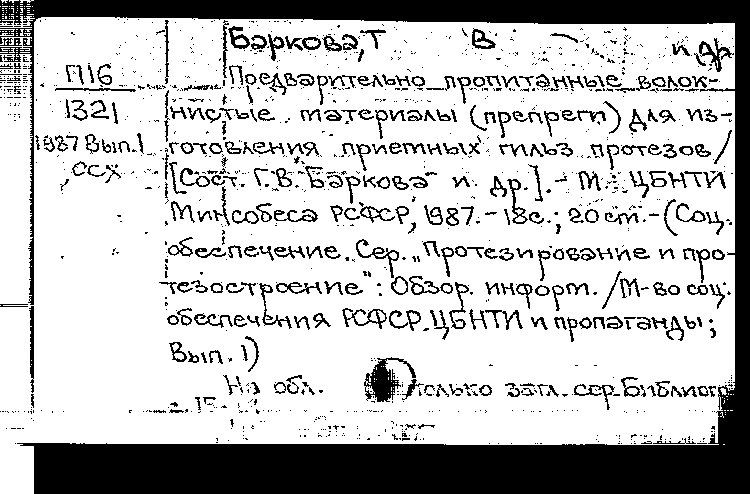 Баркова, Г В и др
П16
1321
1987 Вып.1
ССХ
Предварительно пропитанные волок-
нистые материалы (препреги) для из-
готовления приемных гильз протезов/
[Сост. Г.В. Баркова и др.].- М.: ЦБНТИ
Минсобеса РСФСР, 1987.- 18с.; 20 см.- (Соц.
обеспечение. Сер. „Протезирование и про-
тезостроение": Обзор. информ. /М-во соц.
обеспечения РСФСР. ЦБНТИ и пропаганды;
Вып. 1)
На обл. только загл. сер. Библиогр